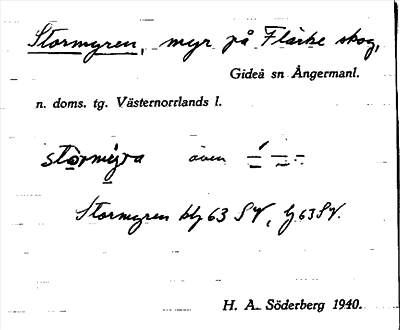 Stormyren, myr på Flärke skog,
Gideå sn Ångermanl.
n. doms. tg. Västernorrlands l.
stòrmýra även
Stormyren blz 63 SV, 63 SV.
H. A. Söderberg 1940.